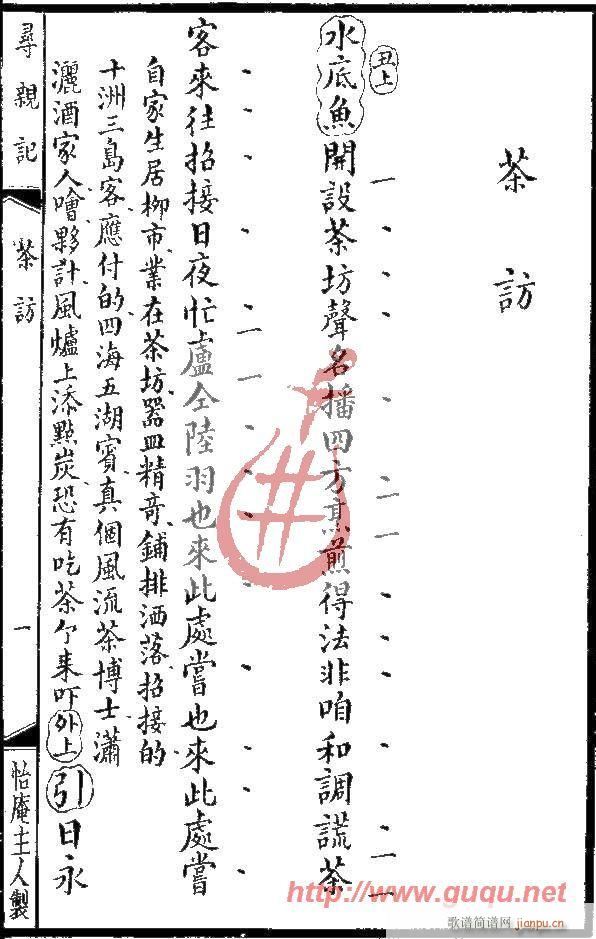 茶訪
丑上
水底魚 開設茶坊聲名播四方熏煎得法非咱和調謊茶
客來往招接日夜忙盧仝陸羽也來此處嘗也來此處嘗
自家生居柳市業在茶坊器皿精奇鋪排洒落招接的
十洲三島客應付的四海五湖賓真個風流茶博士瀟
灑酒家人噲夥計風爐上添點炭恐有吃茶个來吓 外上 引 日永
尋親記
茶訪
一
怡庵主人製
http://www.guqu.net
歌谱简谱网
jianpu.cn